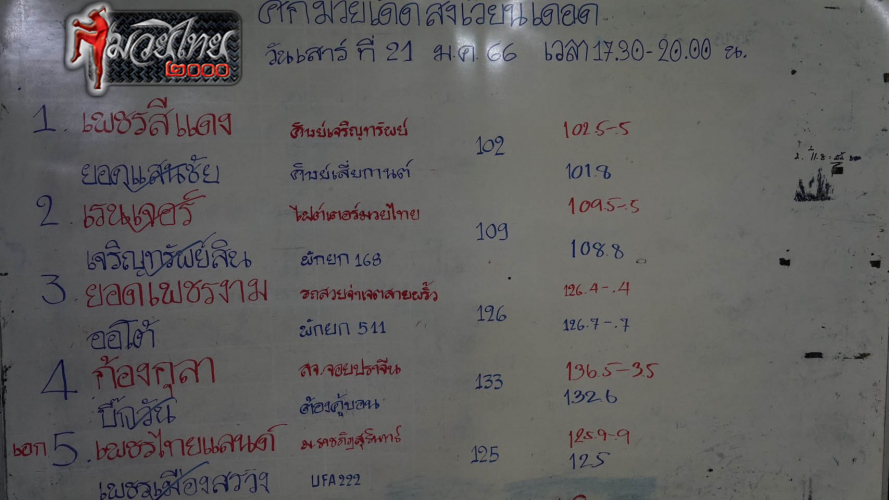 มวยไทย
๒๐๐๐
ศึกมวยเด็ด สังเวียนเดือด
วันเสาร์ ที่ 21 ม.ค. 66 เวลา 17.30-20.00 น.
1. เพชรสีแดง ศิษย์เจริญทรัพย์ 102 102.5-.5
ยอดแสนชัย ศิษย์เสี่ยกานต์ 101.8
2. เรนเจอร์ ไฟต์เตอร์มวยไทย 109 109.5-.5
เจริญทรัพย์สิน พักยก 168 108.8
3. ยอดเพชรงาม รถสวยจ่าเจตสายพริ้ว 126 126.4-.4
ออโต้ พักยก 511 126.7-.7
4 ก้องกุลา สจ.จอยปราจีน 133 136.5-3.5
บิ๊กวัน ต้องคู้บอน 132.6
เอก 5. เพชรไทยแลนด์ ม.ราชภัฏสุรินทร์ 125 125.9-.9
เพชรเมืองสวาง UFA222 125